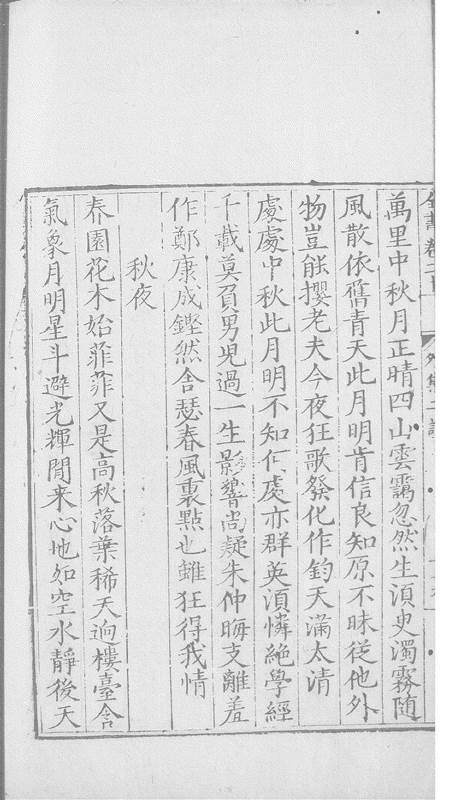 萬里中秋月正晴四山雲靄忽然生湏臾濁霧隨
風散依舊青天此月明肯信良知原不昧從他外
物豈能攖老夫今夜狂歌發化作鈞天滿太清
處處中秋此月明不知何處亦群英湏憐絶學經
千載莫負男兒過一生影響尚疑朱仲晦支離羞
作鄭康成鏗然舍瑟春風裏點也雖狂得我情
秋夜
春園花木始菲菲又是高秋落葉稀天逈樓臺含
氣象月明星斗避光輝閒来心地如空水靜後天